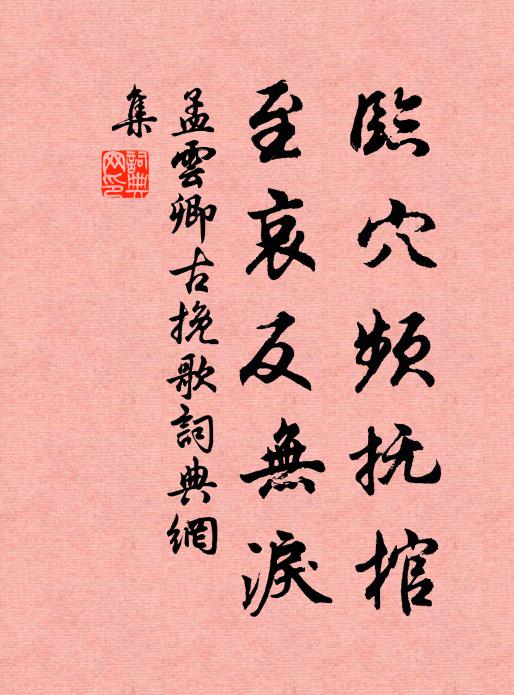 臨穴頻抚棺
至哀反無淚
孟雲卿古挽歌詞典網
集
詞典网印